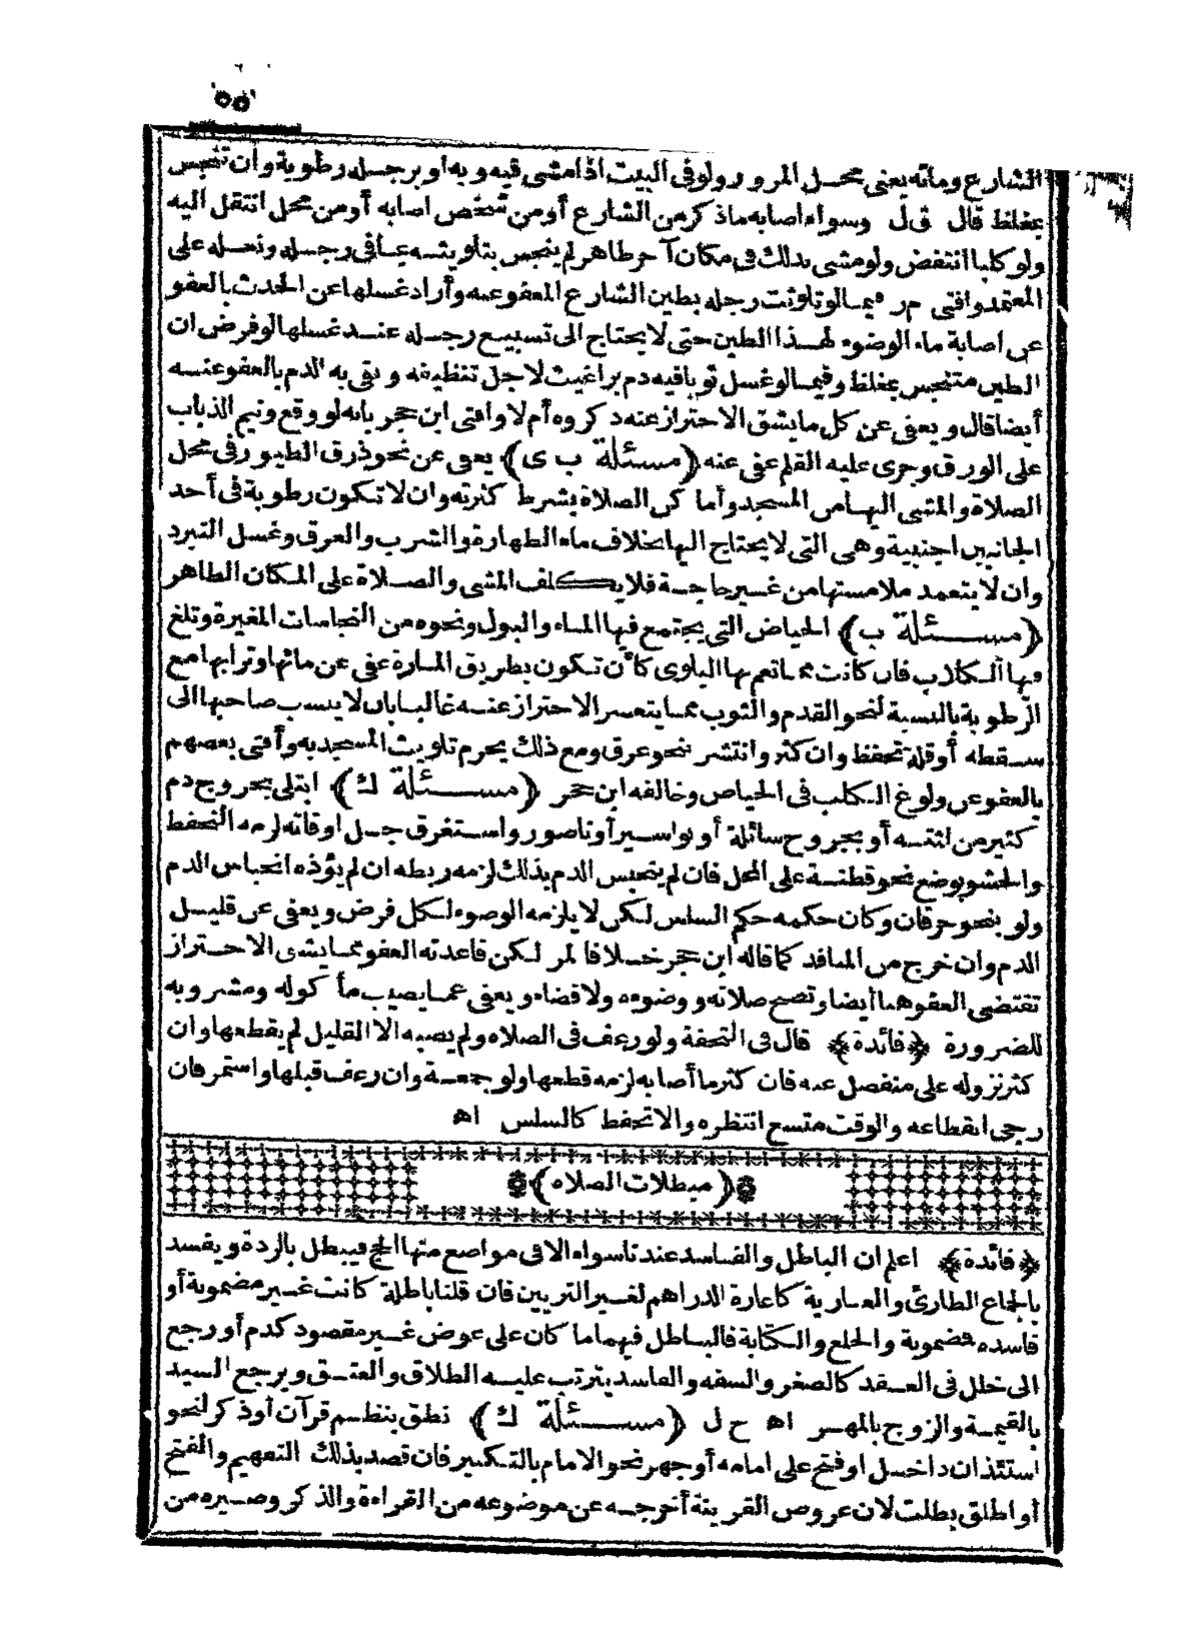 ٥٥
الشارع ومائه يعنى محل المرور ولو فى البيت اذا مشى فيه وبه أو برجله رطوبة وان تنجس
بمغلظ قال ق ل وسواء اصابه ماذكر من الشارع أو من شخص اصابه أو من محل انتقل اليه
ولو كلبا انتفض ولو مشى بذلك فى مكان آخر طاهر لم ينجس بتلويثه عافى رجله ونعله على
المعتمد وافتى م ر فيما لو تلوثت رجله بطين الشارع المعفو عنه وأراد غسلها عن الحدث بالعفو
عن اصابة ماء الوضوء لهذا الطين حتى لا يحتاج الى تسبيع رجله عند غسلها لو فرض ان
الطين متنجس بمغلظ وفيما لو غسل ثوبا فيه دم براغيث لاجل تنظيفه وبقى به الدم بالعفو عنه
أيضا قال ويعفى عن كل مايشق الاحتراز عنه ذكروه أم لا وافتى ابن حجر بانه لو وقع ونيم الذباب
على الورق وجرى عليه القلم عفى عنه ﴿مسئلة ب ى﴾ يعفى عن نحو ذرق الطيور فى محل
الصلاة والمشى اليها من المسجد وأماكن الصلاة بشرط كثرته وان لا تكون رطوبة فى أحد
الجانبين اجنبية وهى التى لا يحتاج اليها بخلاف ماء الطهارة والشرب والعرق وغسل التبرد
وان لا يتعمد ملامستها من غير حاجة فلا يكلف المشى والصلاة على المكان الطاهر
﴿مسئلة ب﴾ الحياض التى يجتمع فيها الماء والبول ونحوه من النجاسات المغيرة وتلغ
فيها الكلاب فان كانت مما تعم بها البلوى كأن تكون بطريق المارة عفى عن مائها وترابها مع
الرطوبة بالنسبة لنحو القدم والثوب مما يتعسر الاحتراز عنه غالبا بان لا ينسب صاحبها الى
سقطه أو قلة تحفظ وان كثر وانتشر بنحو عرق ومع ذلك يحرم تلويث المسجد به وأفتى بعضهم
بالعفو عن ولوغ الكلب فى الحياض وخالفه ابن حجر ﴿مسئلة ك﴾ ابتلى بخروج دم
كثير من لثته أو بجروح سائلة أو بواسير أو ناصور واستغرق جل اوقاته لزمه التحفظ
والحشو بوضع نحو قطنة على المحل فان لم ينحبس الدم بذلك لزمه ربطه ان لم يؤذه انحباس الدم
ولو بنحو حرقان وكان حكمه حكم السلس لكن لا يلزمه الوضوء لكل فرض ويعفى عن قليل
الدم وان خرج من المنافذ كما قاله ابن حجر خلافا لمر لكن قاعدته العفو عما يشق الاحتراز
تقتضى العفو هنا أيضا وتصح صلاته ووضوءه ولا قضاء ويعفى عما يصيب مأكوله ومشروبه
للضرورة ﴿فائدة﴾ قال فى التحفة ولو رعف فى الصلاة ولم يصبه الا القليل لم يقطعها وان
كثر نزوله على منفصل عنه فان كثر ما أصابه لزمه قطعها ولو جمعة وان رعف قبلها واستمر فان
رجى انقطاعه والوقت متسع انتظره والا تحفظ كالسلس اه
﴿مبطلات الصلاه﴾
﴿فائدة﴾ اعلم ان الباطل والفاسد عندنا سواء الا فى مواضع منها الحج فيبطل بالردة ويفسد
بالجماع الطارئ والعارية كاعارة الدراهم لغير التزيين فان قلنا باطلة كانت غير مضمونة أو
فاسده فمضمونة والخلع والكتابة فالباطل فيهما ما كان على عوض غير مقصود كدم أو رجع
الى خلل فى العقد كالصغر والسفه والفاسد يترتب عليه الطلاق والعتق ويرجع السيد
بالقيمة والزوج بالمهر اه ح ل ﴿مسئلة ك﴾ نطق بنظم قرآن أو ذكر لنحو
استئذان داخل او فتح على امامه أو جهر نحو الامام بالتكبير فان قصد بذلك التفهيم والفتح
أو اطلق بطلت لان عروض القرينة أخرجه عن موضوعه من القراءة والذكر وصيره من